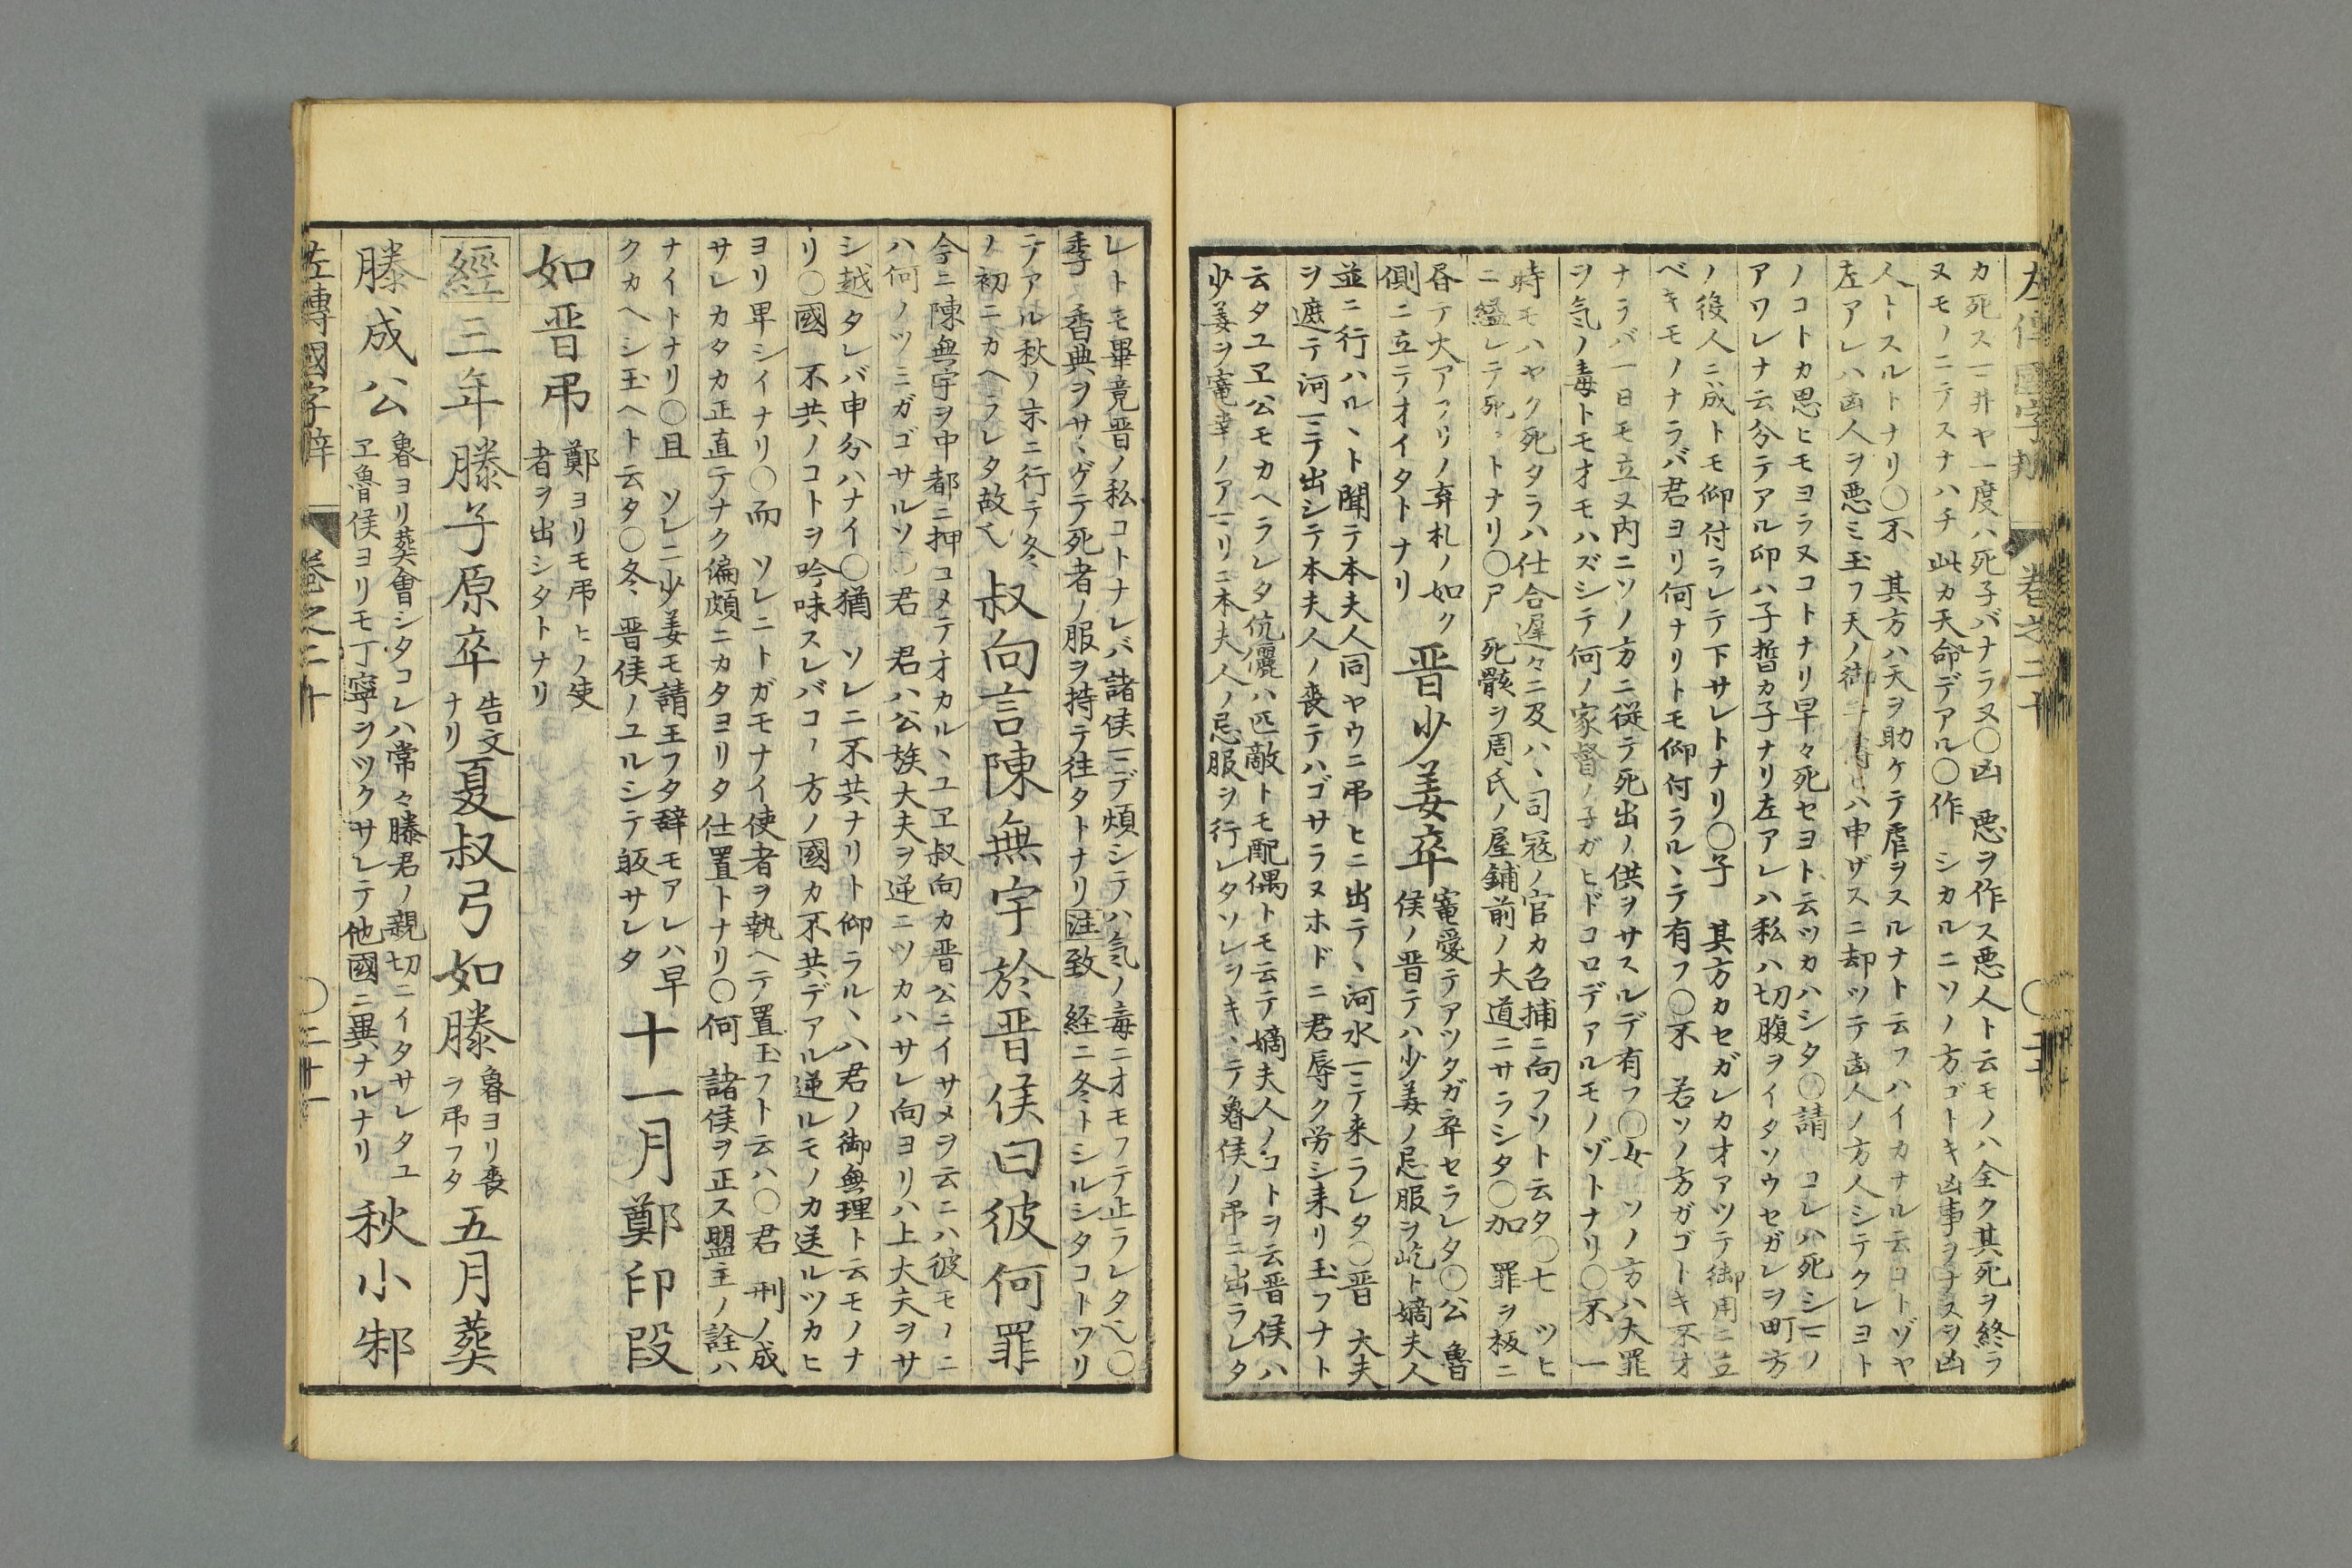 左傳國字辯 卷之二十
カ死ス一并ヤ一度ハ死子バナラヌ〇凶 悪ヲ作ス悪人ト云モノハ全ク其死ヲ終ラ
ヌモノニテスナハチ此カ天命デアル〇作 シカルニソノ方ゴトキ凶事ヲナスヲ凶
人トスルトナリ〇不 其方ハ天ヲ助ケテ虐ヲスルナト云フハイカナル云コトゾヤ
左アレハ凶人ヲ悪ミ玉フ天ノ御 ハ申ザスニ却ツテ凶人ノ方人シテクレヨト
ノコトカ思ヒモヨラヌコトナリ早々死セヨト云ツカハシタ〇請 コレハ死シ一ノ
アワレナ云分テアル印ハ子晳カ子ナリ左アレハ私ハ切腹ヲイタソウセガレヲ町方
ノ役人ニ成トモ仰付ラレテ下サレトナリ〇子 其方カセガレカオアツテ御用ニ立
ベキモノナラバ君ヨリ何ナリトモ仰付ラル丶テ有フ〇不 若ソノ方ガゴトキ不才
ナラバ一日モ立ヌ内ニソノ方ニ従テ死出ノ供ヲサスルデ有フ〇女 ソノ方ハ大罪
ヲ気ノ毒トモオモハズシテ何ノ家督ノ子ガヒドコロデアルモノゾトナリ〇不 一
時モハヤク死タラハ仕合遅々ニ及ハ丶司冦ノ官カ召捕ニ向フソト云タ〇七 ツヒ
ニ縊レテ死丶トナリ〇尸 死骸ヲ周氏ノ屋鋪前ノ大道ニサラシタ〇加 罪ヲ板ニ
昏テ大アフリノ弃札ノ如ク 晋少姜卒 寵愛テアツタガ卒セラレタ〇公 魯
側ニ立テオイタトナリ 侯ノ晋テハ少姜ノ忌服ヲ屹ト嫡夫人
並ニ行ハル丶ト聞テ本夫人同ヤウニ弔ヒニ出テ丶河水一ニテ来ラレタ〇晋 大夫
ヲ遮テ河一ニテ出シテ本夫人ノ喪テハゴサラヌホドニ君辱ク労シ来リ玉フナト
云タユヱ公モカヘラレタ伉儷ハ匹敵トモ配偶トモ云テ嫡夫人ノコトヲ云晋侯ハ
少姜ヲ寵幸ノアマリニ本夫人ノ忌服ヲ行レタソレヲキ丶テ魯侯ノ弔ニ出ラレタ
レトモ畢竟晋ノ私コトナレバ諸侯一ニデ煩シテハ気ノ毒ニオモフテ止ラレタ也〇
季 香典ヲサ丶ゲテ死者ノ服ヲ持テ往タトナリ 注致 経ニ冬トシルシタコトワリ
テアル秋ノ末ニ行テ冬
ノ初ニカヘラレタ故也 叔向言陳無宇於晋侯曰彼何罪
今ニ陳無宇ヲ中都ニ押コメテオカル丶ユヱ叔向カ晋公ニイサメヲ云ニハ彼モノニ
ハ何ノツミガゴサルソ〇君 君ハ公族大夫ヲ逆ニツカハサレ向ヨリハ上大夫ヲサ
シ越タレバ申分ハナイ〇猶 ソレニ不共ナリト仰ラル丶ハ君ノ御無理ト云モノナ
リ〇國 不共ノコトヲ吟味スレバコノ方ノ國カ不共デアル逆ルモノカ送ルツカヒ
ヨリ卑シイナリ〇而 ソレニトガモナイ使者ヲ執ヘテ置玉フト云ハ〇君 刑ノ成
サレカタカ正直テナク偏頗ニカタヨリタ仕置トナリ〇何 諸侯ヲ正ス盟主ノ詮ハ
ナイトナリ〇且 ソレニ少姜モ請玉フタ辞モアレハ早
クカヘシ玉ヘト云タ〇冬 晋侯ノユルシテ皈サレタ 十一月鄭印段
如晋弔 鄭ヨリモ弔ヒノ使
者ヲ出シタトナリ
經三年滕子原卒 告文ナリ 夏叔弓如滕 魯ヨリ喪ヲ弔フタ 五月葬
滕成公 魯ヨリ葬會シタコレハ常々滕君ノ親切ニイタサレタユ
ヱ魯侯ヨリモ丁寧ヲツクサレテ他國ニ異ナルナリ 秋小邾
左傳國字辯 卷之二十 〇二十一